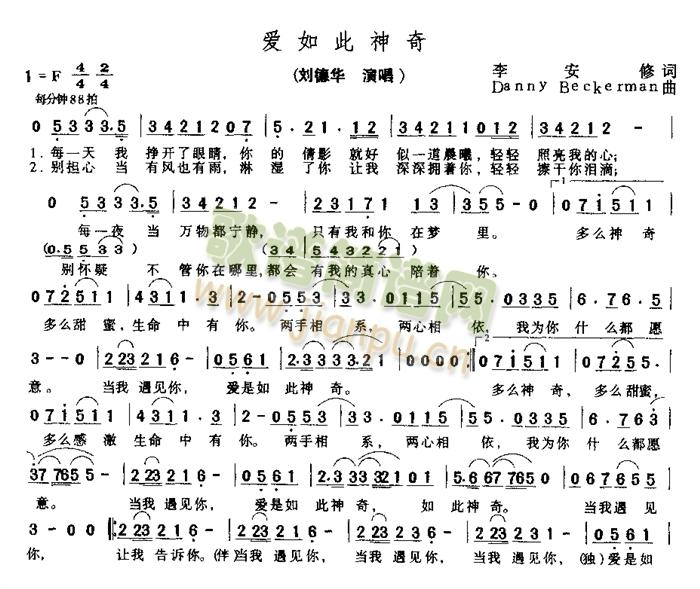 爱如此神奇
1=F 4/4 2/4 (刘德华 演唱) 李安修词
每分钟88拍 Danny Beckerman曲
0 5 3 3 3. 5 | 3 4 2 1 2 0 7 | 5. 2 1. 1 2 | 3 4 2 1 1 0 1 2 | 3 4 2 1 2 - |
1. 每一天 我 挣开了眼睛,你 的 倩影 就好 似一道晨曦,轻轻 照亮我的心;
2. 别担心 当 有风也有雨,淋 湿了你 让我 深深拥着你,轻轻 擦干你泪滴;
0 5 3 3 3. 5 | 3 4 2 1 2 - | 2 3 1 7 1 | 1 3 | 3 5 5 - 0 | 0 7 1 5 1 1 |
每一夜 当 万物都宁静, 只有我和你 在梦 里。 多么神奇
(0. 5 5 3 3) (3 4 5 4 3 2 2 1)
别怀疑 不 管你在哪里,都会 有我的真心 陪着 你。
0 7 2 5 1 1 | 4 3 1 1. 3 | 2 - 0 5 5 3 | 3 3. 0 1 1 5 | 5 5. 0 3 3 5 | 6. 7 6. 5 |
多么甜 蜜,生命中 有 你。 两手相 系, 两心相 依, 我为你 什么都愿
3 - - 0 | 2 2 3 2 1 6 - | 0 5 6 1 | 2. 3 3 3 3. 2 1 | 0 0 0 0 :| 0 7 1 5 1 1 | 0 7 2 5 5. |
意。 当我 遇见你, 爱是如 此神 奇。 多么神奇, 多么甜蜜,
0 7 1 5 1 1 | 4 3 1 1. 3 | 2 - 0 5 5 3 | 3 3. 0 1 1 5 | 5 5. 0 3 3 5 | 6. 7 6 3 |
多么感 激 生命中 有 你。 两手相 系, 两心相 依, 我为你 什么都愿
3 7 7 6 5 5 - | 2 2 3 2 1 6 - | 0 5 6 1 | 2. 3 3 3 3 2 1 | 5. 6 6 7 7 6 5. | 0 6 7 6 5. |
意。 当我 遇见你, 爱是如 此神 奇, 如 此神奇。 当我遇见
3 - 0 0 |: 2 2 3 2 1 6 - | 2 2 3 2 1 6 - | 2 2 3 2 1 6 - | 2 2 3 2 1 6 - | 0 5 6 1 |
你, 让我 告诉你。(伴)当我 遇见你, 当我 遇见你, 当我 遇见你, (独)爱是如